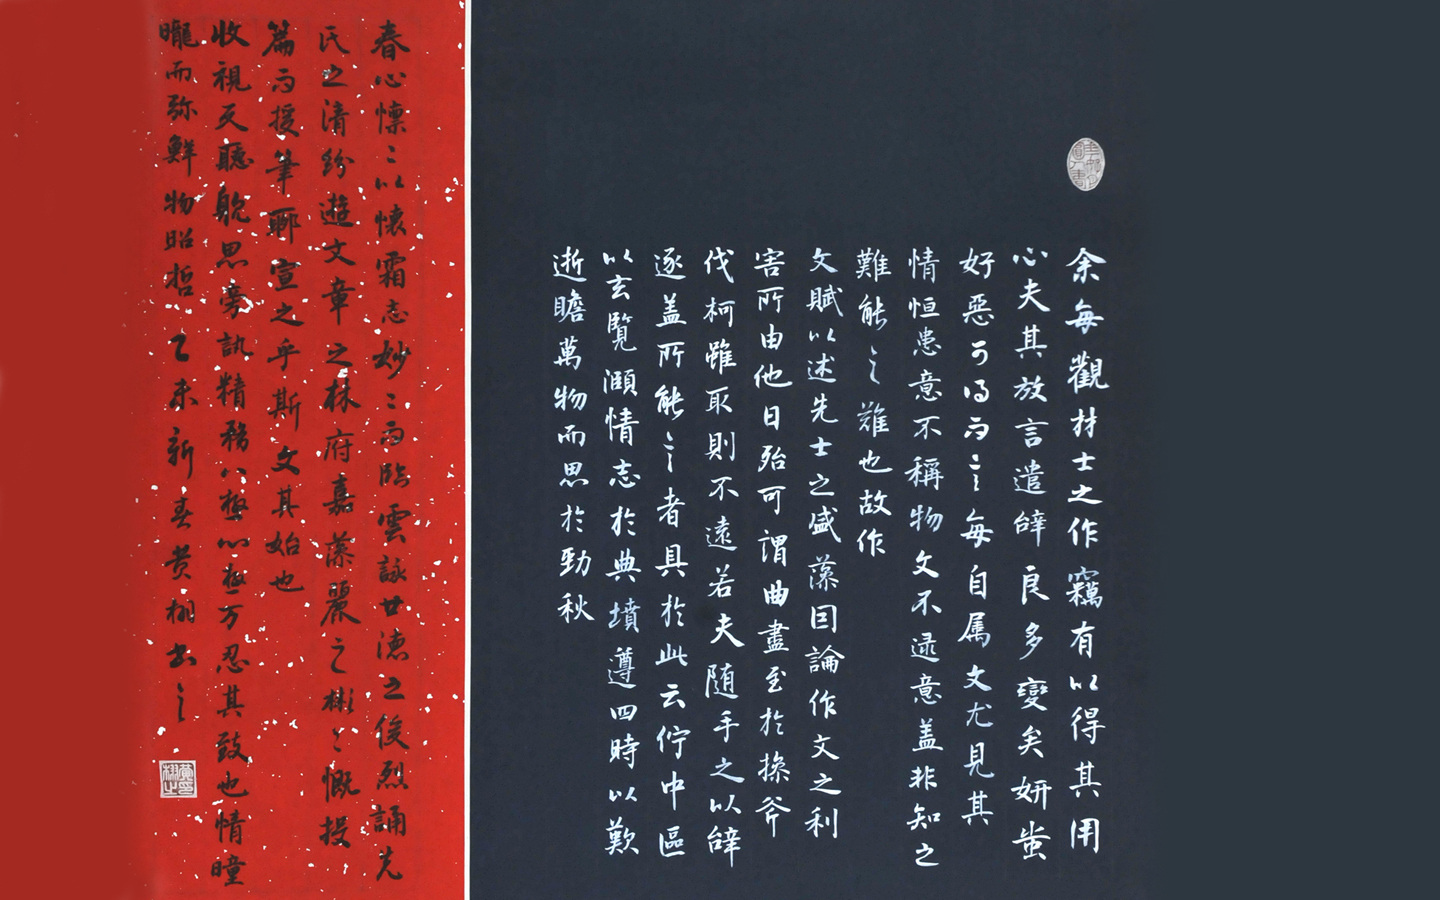 余每觀材士之作竊有以得其用
心夫其放言遣辭良多變矣妍蚩
好惡可得而言每自属文尤見其
情恒患意不稱物文不逮意盖非知之
難能之難也故作
文賦以述先士之盛藻因論作文之利
害所由他日殆可謂曲盡至於操斧
伐柯雖取則不遠若夫随手之以辭
逐盖所能言者具於此云佇中區
以玄覽頤情志於典墳遵四時以歎
逝瞻萬物而思於勁秋
春心懍〻以懷霜志妙〻而臨雲詠世德之俊烈誦先
氏之清紛遊文章之林府嘉藻麗之彬〻慨投
篇而援筆聊宣之乎斯文其始也
收視反聽耽思旁訊精務八極心極万忍其致也情曈
曨而弥鮮物昭哲乙未新春黄栩書之